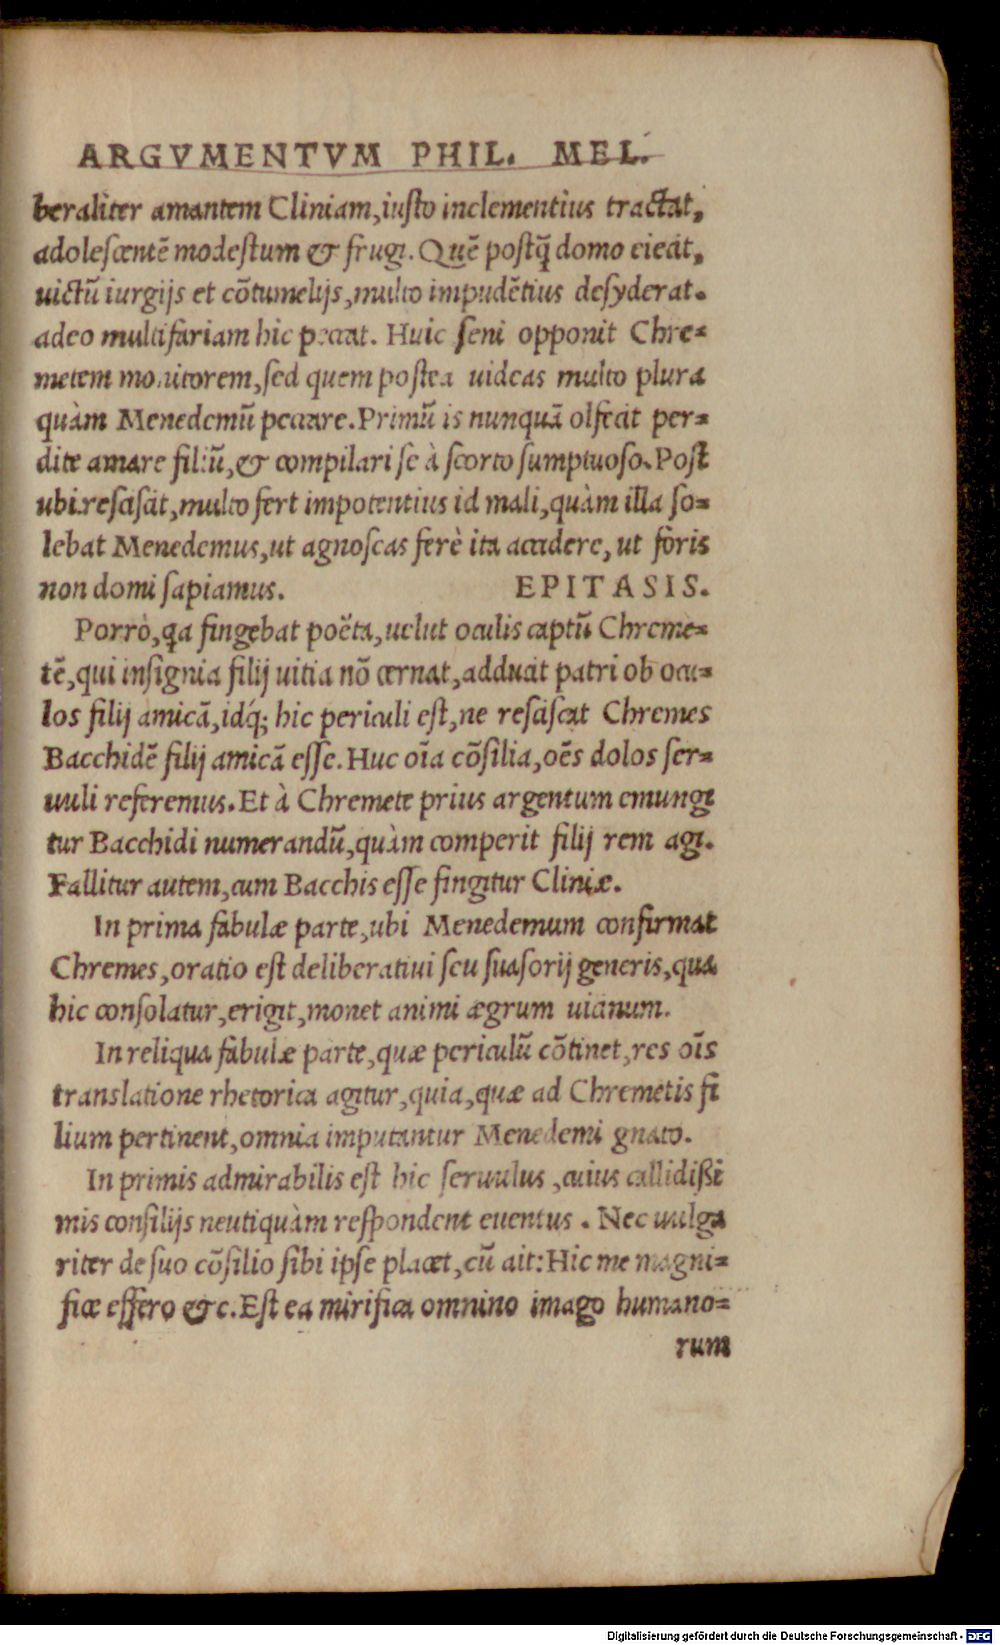 ARGVMENTVM PHIL. MEL.
beraliter amantem Cliniam, iusto inclementius tractat,
adolescentē modestum & frugi. Quē postq̃ domo eiecit,
uictū iurgijs et cōtumelijs, multo impudētius desyderat.
adeo multifariam hic peccat. Huic seni opponit Chre-
metem monitorem, sed quem postea uideas multo plura
quàm Menedemū peccare. Primū is nunquā olfecit per-
dite amare filiū, & compilari se à scorto sumptuoso. Post
ubi resciscit, multo fert impotentius id mali, quàm illa so-
lebat Menedemus, ut agnoscas ferè ita accidere, ut foris
non domi sapiamus. EPITASIS.
Porrò, qa fingebat poëta, uelut oculis captū Chreme-
tē, qui insignia filij uitia nō cernat, adducit patri ob ocu-
los filij amicā, idq́; hic periculi est, ne resciscat Chremes
Bacchidē filij amicā esse. Huc oīa cōsilia, oēs dolos ser-
uuli referemus. Et à Chremete prius argentum emungi
tur Bacchidi numerandū, quàm comperit filij rem agi.
Fallitur autem, cum Bacchis esse fingitur Cliniæ.
In prima fabulæ parte, ubi Menedemum confirmat
Chremes, oratio est deliberatiui seu suasorij generis, qua
hic consolatur, erigit, monet animi ægrum uicinum.
In reliqua fabulæ parte, quæ periculū cōtinet, res oīs
translatione rhetorica agitur, quia, quæ ad Chremetis fi
lium pertinent, omnia imputantur Menedemi gnato.
In primis admirabilis est hic seruulus, cuius callidißi
mis consilijs neutiquàm respondent euentus. Nec uulga
riter de suo cōsilio sibi ipse placet, cū ait: Hic me magni-
fice effero &c. Est ea mirifica omnino imago humano-
rum
Digitalisierung gefördert durch die Deutsche Forschungsgemeinschaft - DFG